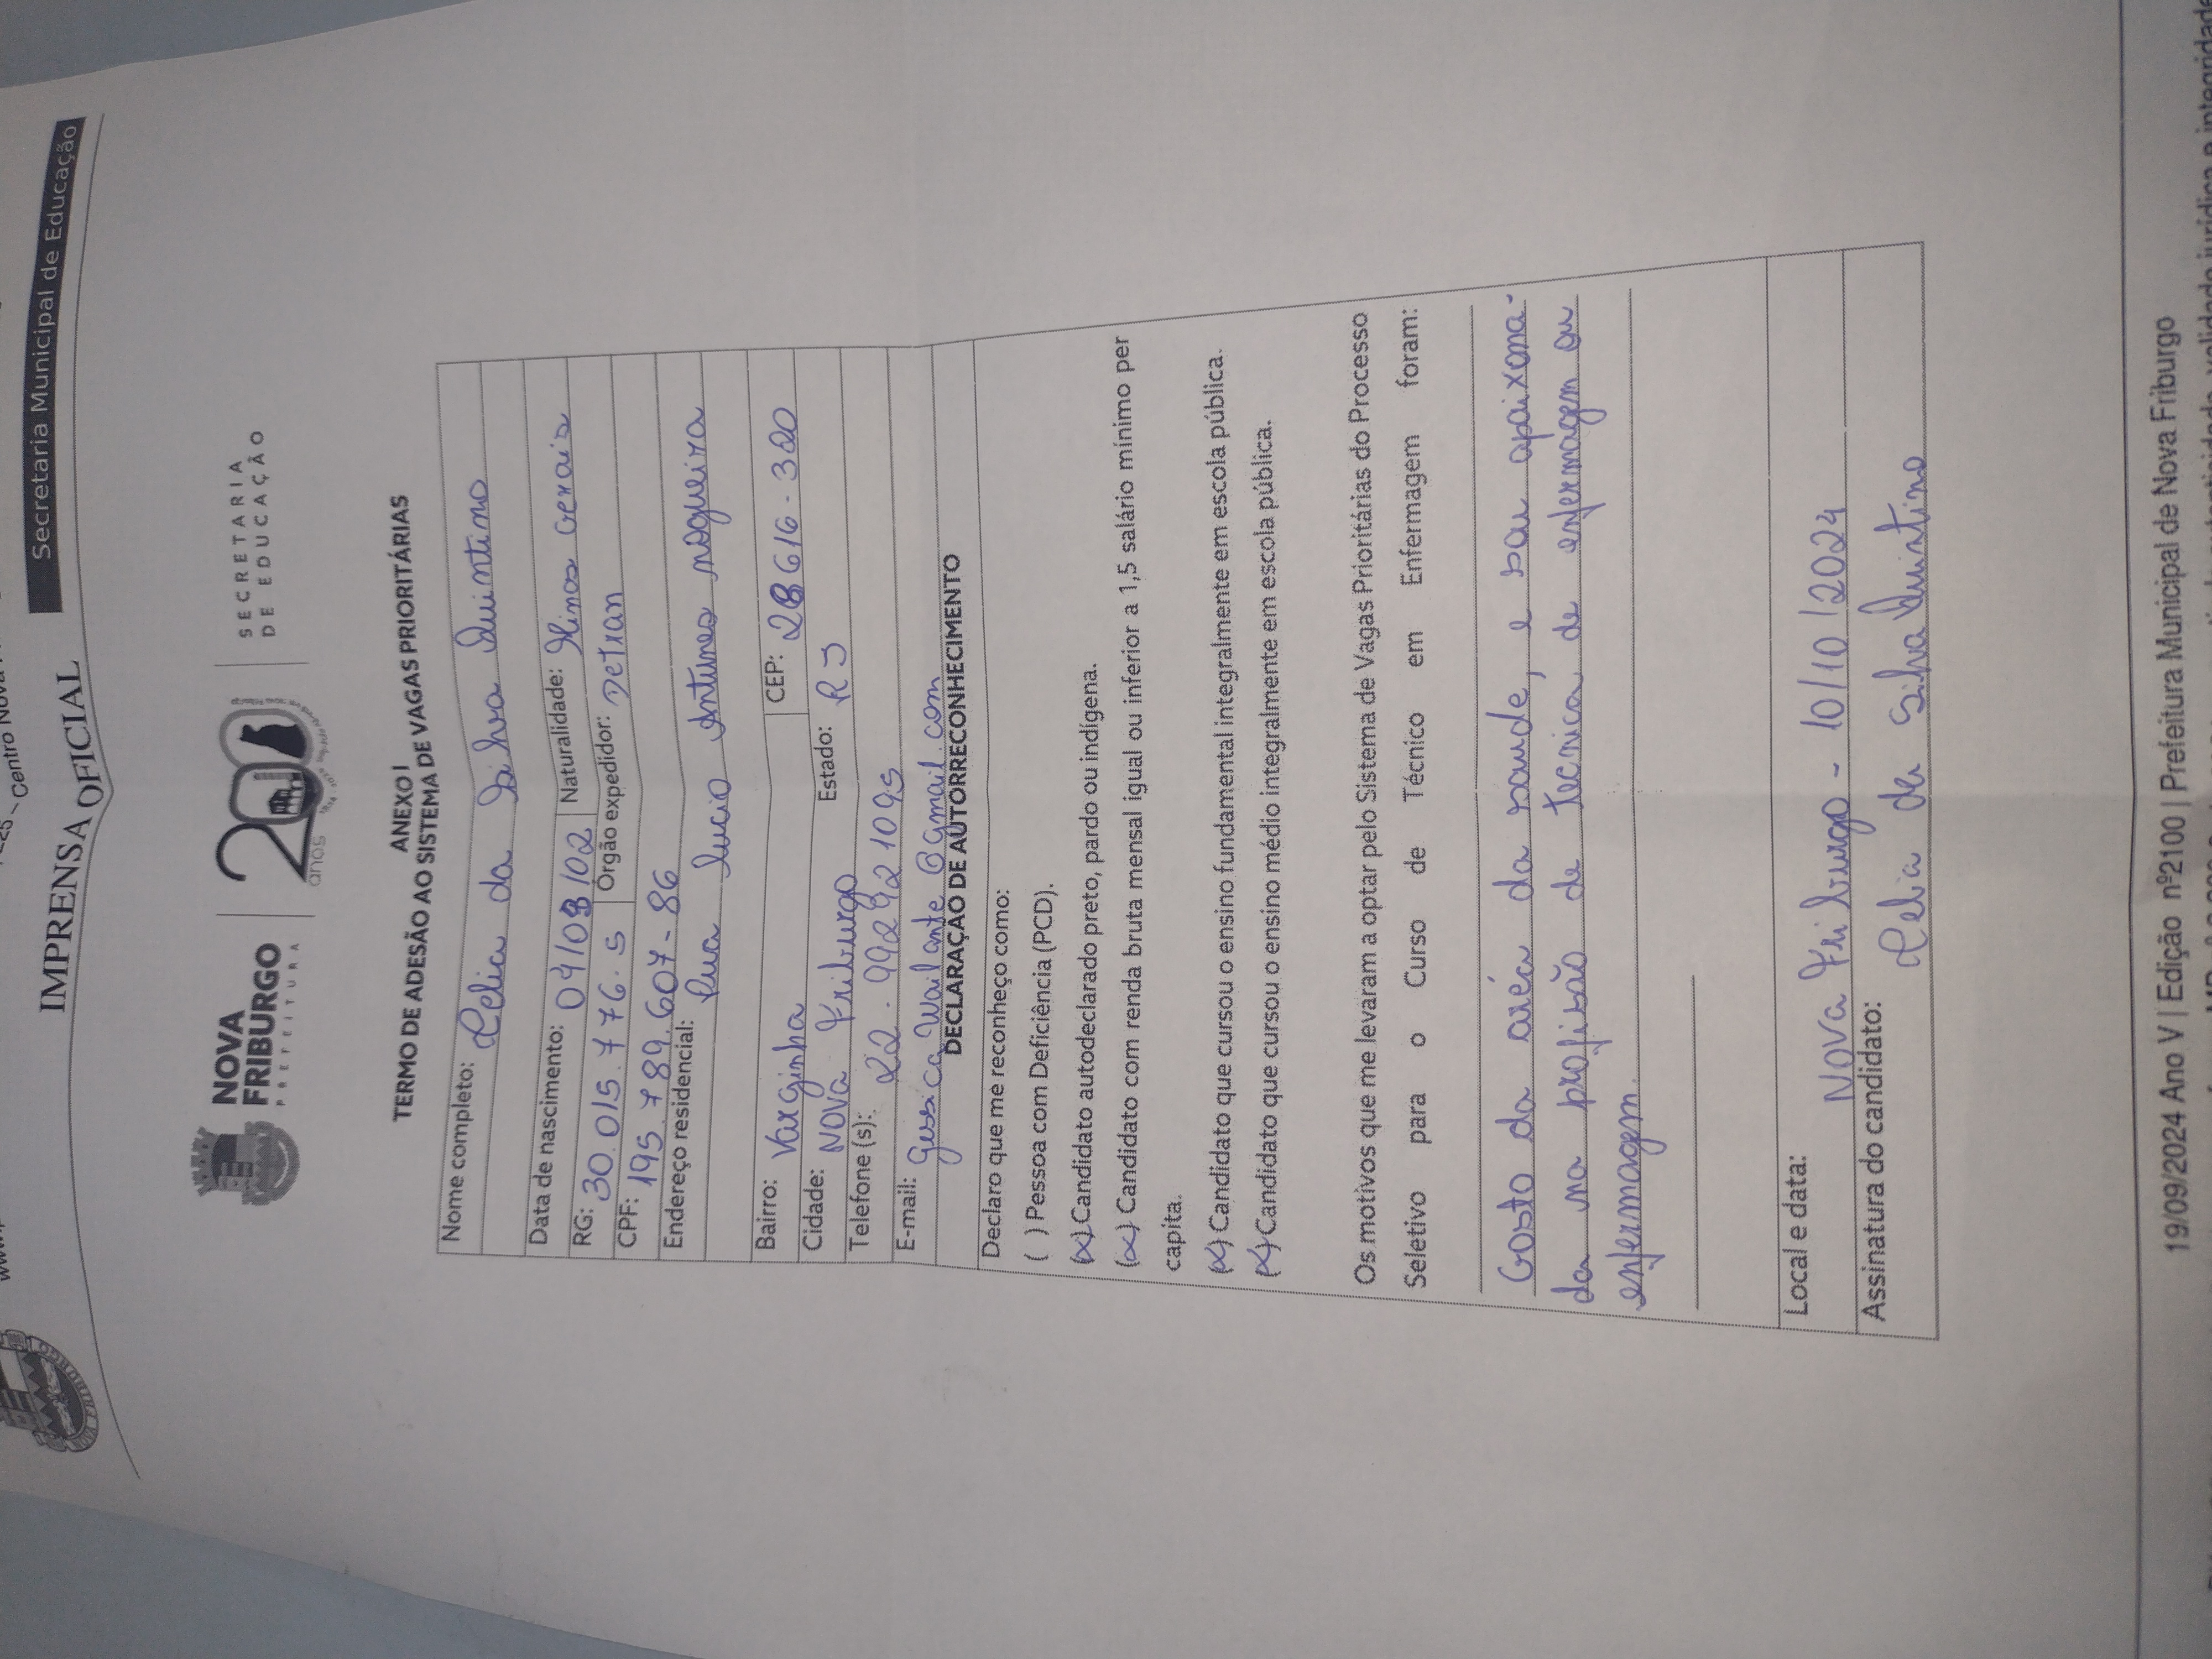 Centro Nova
IMPRENSA OFICIAL
Secretaria Municipal de Educação
NOVA FRIBURGO
PREFEITURA
200 anos
SECRETARIA DE EDUCAÇÃO
ANEXO I
TERMO DE ADESÃO AO SISTEMA DE VAGAS PRIORITÁRIAS
Nome completo: Celia da Silva Quintino
Data de nascimento: 07/03/02 Naturalidade: Minas Gerais
RG: 30.015.776.5 Órgão expedidor: Detran
CPF: 195.789.607-86
Endereço residencial: Rua Lucio Antunes nogueira
Bairro: Varginha CEP: 28616-320
Cidade: Nova Friburgo Estado: RJ
Telefone (s): 22-992921095
E-mail: @gmail.com
DECLARAÇÃO DE AUTORRECONHECIMENTO
Declaro que me reconheço como:
( ) Pessoa com Deficiência (PCD).
(x) Candidato autodeclarado preto, pardo ou indígena.
(x) Candidato com renda bruta mensal igual ou inferior a 1,5 salário mínimo per
capita.
(x) Candidato que cursou o ensino fundamental integralmente em escola pública.
(x) Candidato que cursou o ensino médio integralmente em escola pública.
Os motivos que me levaram a optar pelo Sistema de Vagas Prioritárias do Processo
Seletivo para o Curso de Técnico em Enfermagem foram:
Gosto da aréa da saude, e sou apaixona-
da na profissão de tecnica de enfermagem ou
enfermagem.
Local e data:
Nova Friburgo - 10/10/2024
Assinatura do candidato:
Celia da Silva Quintino
19/09/2024 Ano V | Edição nº2100 | Prefeitura Municipal de Nova Friburgo